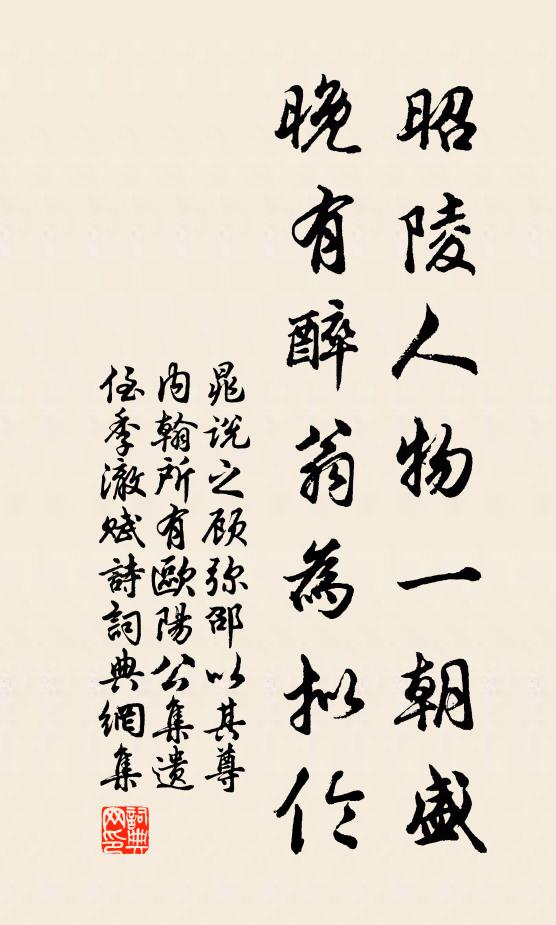 昭陵人物一朝盛
晚有醉翁為拟伦
晁说之顾弥邵以其尊
内翰所有歐陽公集遗
侄季澈赋詩詞典網集
詞典
网印